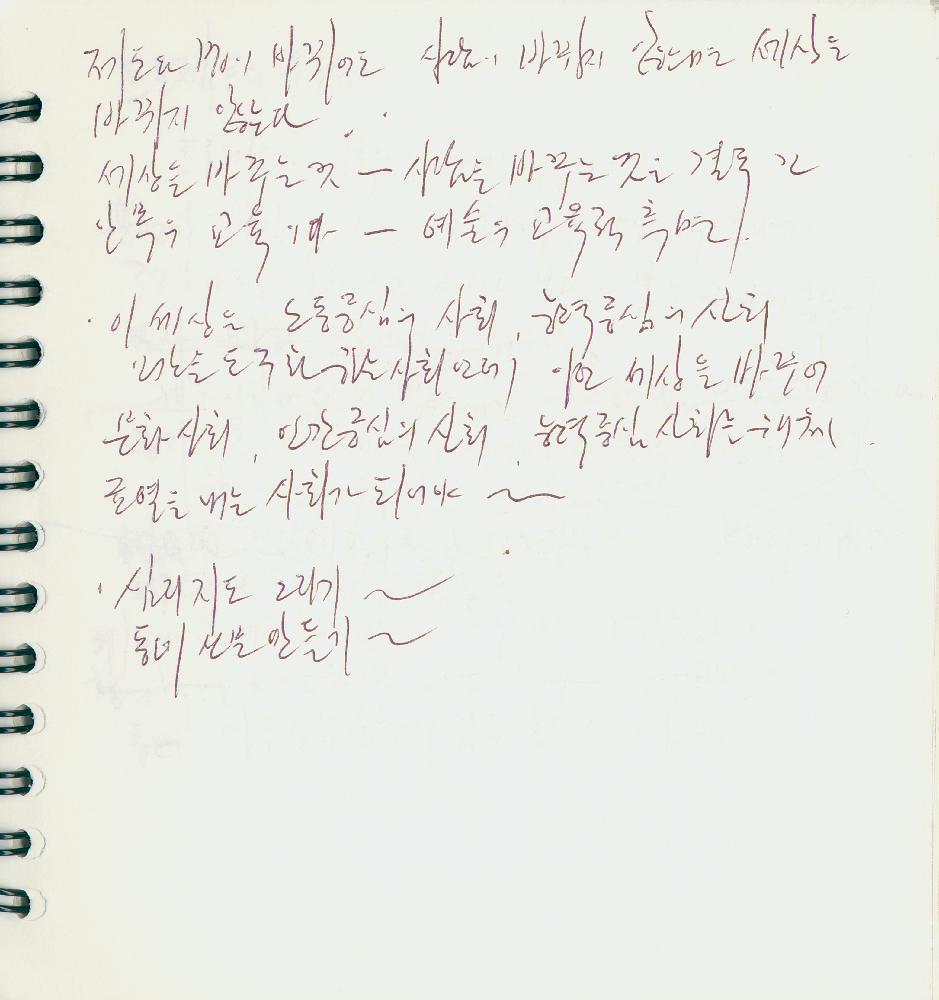 제도와 법이 바뀌어도 사람이 바뀌지 않는다면 세상은
바뀌지 않는다.
세상을 바꾸는 것 — 사람을 바꾸는 것은 결국
교육이다 — 예술의 교육적 측면.
· 이 세상은 노동중심의 사회, 능력중심의 사회
사회인데, 이런 세상을 바꾸어
문화사회, 인간중심의 사회, 능력중심 사회를 해체,
균열을 내는 사회가 되어야 ~
· 심리지도 그리기 ~
동네 신문 만들기 ~